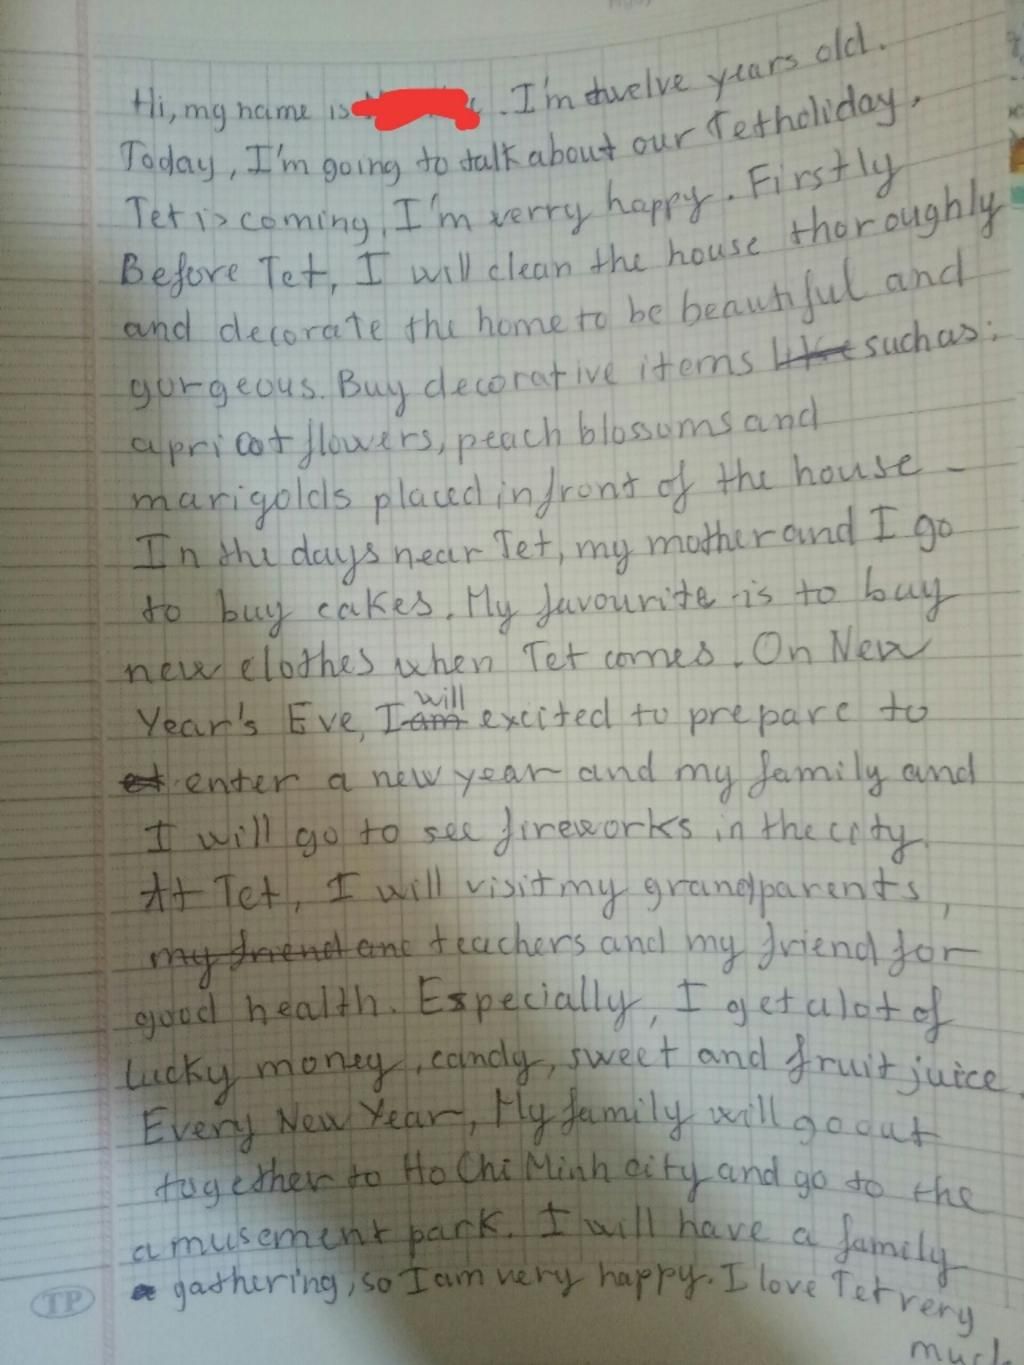 Hi, my name is . I'm twelve years old.
Today, I'm going to talk about our Tet holiday.
Tet is coming, I'm verry happy. Firstly
Before Tet, I will clean the house thoroughly
and decorate the home to be beautiful and
gorgeous. Buy decorative items like such as:
apricot flowers, peach blossoms and
marigolds placed in front of the house -
In the days near Tet, my mother and I go
to buy cakes. My favourite is to buy
new clothes when Tet comes. On New
Year's Eve, I am will excited to prepare to
enter a new year and my family and
I will go to see fireworks in the city.
At Tet, I will visit my grandparents,
my friend and teachers and my friend for
good health. Especially, I get a lot of
lucky money, candy, sweet and fruit juice.
Every New Year, My family will go out
together to Ho Chi Minh city and go to the
amusement park. I will have a family
gathering, so I am very happy. I love Tet very
much
TP